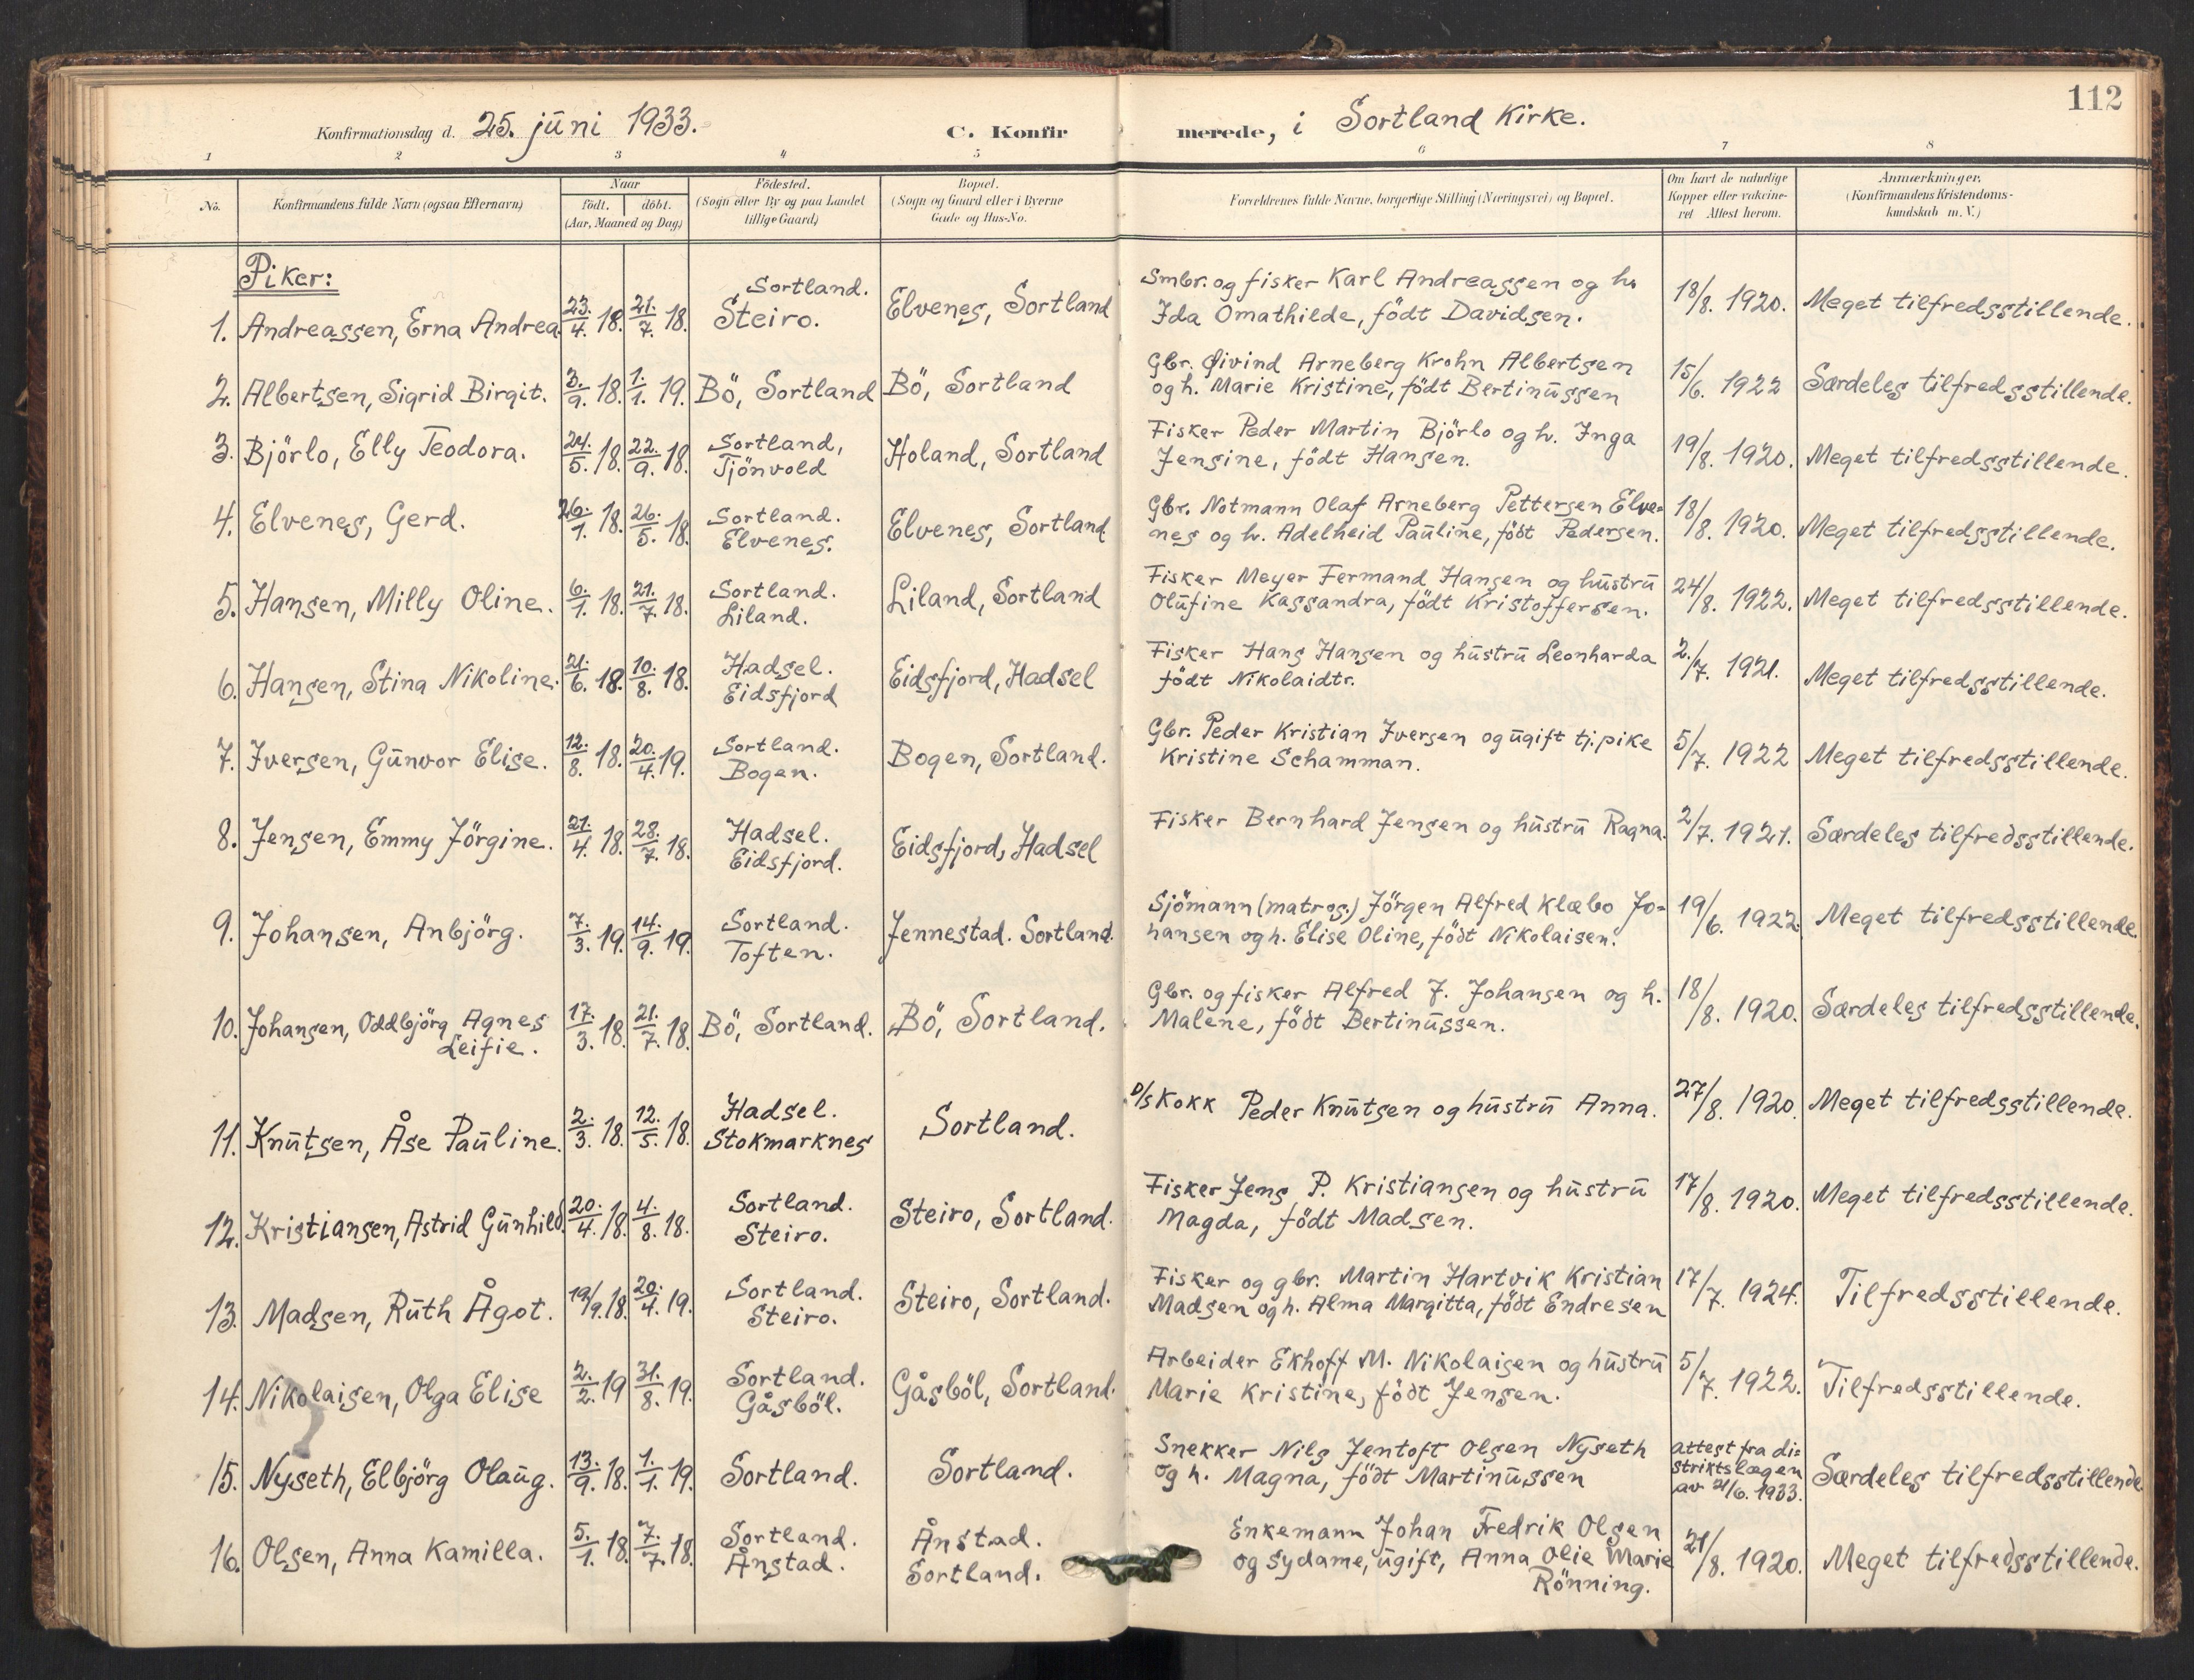 112
Konfirmationsdag d. 25. juni 1933. C. Konfirmerede, i Sortland Kirke.
1 2 3 4 5 6 7 8
No.
Konfirmandens fulde Navn (ogsaa Efternavn)
Naar
født. døbt.
(Aar, Maaned og Dag)
Fødested.
(Sogn eller By og paa Landet
tillige Gaard)
Bopæl.
(Sogn og Gaard eller i Byerne
Gade og Hus-No.
Forældrenes fulde Navne, borgerlige Stilling (Næringsvei) og Bopæl.
Om havt de naturlige
Kopper eller vaccine-
ret Attest herom.
Anmærkninger.
(Konfirmandens Kristendoms-
kundskab m. V.)
Piker:
1. Andreassen, Erna Andrea 23./4. 18. 21./7. 18. Sortland.
Steiro. Elvenes, Sortland Smbr. og fisker Karl Andreassen og h.
Ida Omathilde, födt Davidsen. 18/8. 1920. Meget tilfredsstillende.
2. Albertsen, Sigrid Birgit. 3./9. 18. 1./1. 19. Bö, Sortland Bö, Sortland Gbr. Øivind Arneberg Krohn Albertsen
og h. Marie Kristine, födt Bertinussen 15/6. 1922 Særdeles tilfredsstillende.
3. Björlo, Elly Teodora. 24./5. 18. 22./9. 18. Sortland,
Tjönvold Holand, Sortland Fisker Peder Martin Björlo og h. Inga
Jensine, födt Hansen. 19/8. 1920. Meget tilfredsstillende.
4. Elvenes, Gerd. 26./1. 18. 26./5. 18. Sortland.
Elvenes. Elvenes, Sortland Gbr. Notmann Olaf Arneberg Pettersen Elve=
nes og h. Adelheid Pauline, födt Pedersen. 18/8. 1920. Meget tilfredsstillende.
5. Hansen, Milly Oline. 6./1. 18. 21./7. 18. Sortland.
Liland. Liland, Sortland Fisker Meyer Fermand Hansen og hustru
Olufine Kassandra, födt Kristoffersen. 24/8. 1922. Meget tilfredsstillende.
6. Hansen, Stina Nikoline. 21./6. 18. 10./8. 18. Hadsel.
Eidsfjord Eidsfjord, Hadsel Fisker Hans Hansen og hustru Leonharda
födt Nikolaidtr. 2./7. 1921. Meget tilfredsstillende.
7. Iversen, Gunvor Elise. 12./8. 18. 20./4. 19. Sortland.
Bogen. Bogen, Sortland. Gbr. Peder Kristian Iversen og ugift tj.pike
Kristine Schamman. 5/7. 1922 Meget tilfredsstillende.
8. Jensen, Emmy Jörgine. 21./4. 18. 28./7. 18. Hadsel.
Eidsfjord. Eidsfjord, Hadsel Fisker Bernhard Jensen og hustru Ragna. 2/7. 1921. Særdeles tilfredsstillende.
9. Johansen, Anbjörg. 7./3. 19. 14./9. 19. Sortland.
Toften. Jennestad. Sortland. Sjömann (matros.) Jörgen Alfred Klæbo Jo=
hansen og h. Elise Oline, födt Nikolaisen. 19/6. 1922. Meget tilfredsstillende.
10. Johansen, Oddbjörg Agnes
Leifie. 17./3. 18. 21./7. 18. Bö, Sortland. Bö, Sortland. Gbr. og fisker Alfred J. Johansen og h.
Malene, födt Bertinussen. 18/8. 1920. Særdeles tilfredsstillende.
11. Knutsen, Åse Pauline. 2./3. 18. 12./5. 18. Hadsel.
Stokmarknes Sortland. D/S Kokk Peder Knutsen og hustru Anna. 27/8. 1920. Meget tilfredsstillende.
12. Kristiansen, Astrid Gunhild. 20./4. 18. 4./8. 18. Sortland.
Steiro. Steiro, Sortland. Fisker Jens P. Kristiansen og hustru
Magda, födt Madsen. 17/8. 1920. Meget tilfredsstillende.
13. Madsen, Ruth Ågot. 19/9. 18. 20./4. 19. Sortland.
Steiro. Steiro, Sortland. Fisker og gbr. Martin Hartvik Kristian
Madsen og h. Alma Margitta, födt Endresen 17/7. 1924. Tilfredsstillende.
14. Nikolaisen, Olga Elise 2./2. 19 31./8. 19. Sortland.
Gåsböl. Gåsböl, Sortland. Arbeider Ekhoff M. Nikolaisen og hustru
Marie Kristine, födt Jensen. 5/7. 1922. Tilfredsstillende.
15. Nyseth, Elbjörg Olaug. 13./9. 18. 1./1. 19. Sortland. Sortland. Snekker Nils Jentoft Olsen Nyseth
og h. Magna, födt Martinussen attest fra di=
striktslægen
av 21/6. 1933. Særdeles tilfredsstillende.
16. Olsen, Anna Kamilla. 5./1. 18. 7./7. 18. Sortland.
Ånstad. Ånstad.
Sortland. Enkemann Johan Fredrik Olsen
og sydame, ugift, Anna Olie Marie
Rönning. 21/8. 1920. Meget tilfredsstillende.